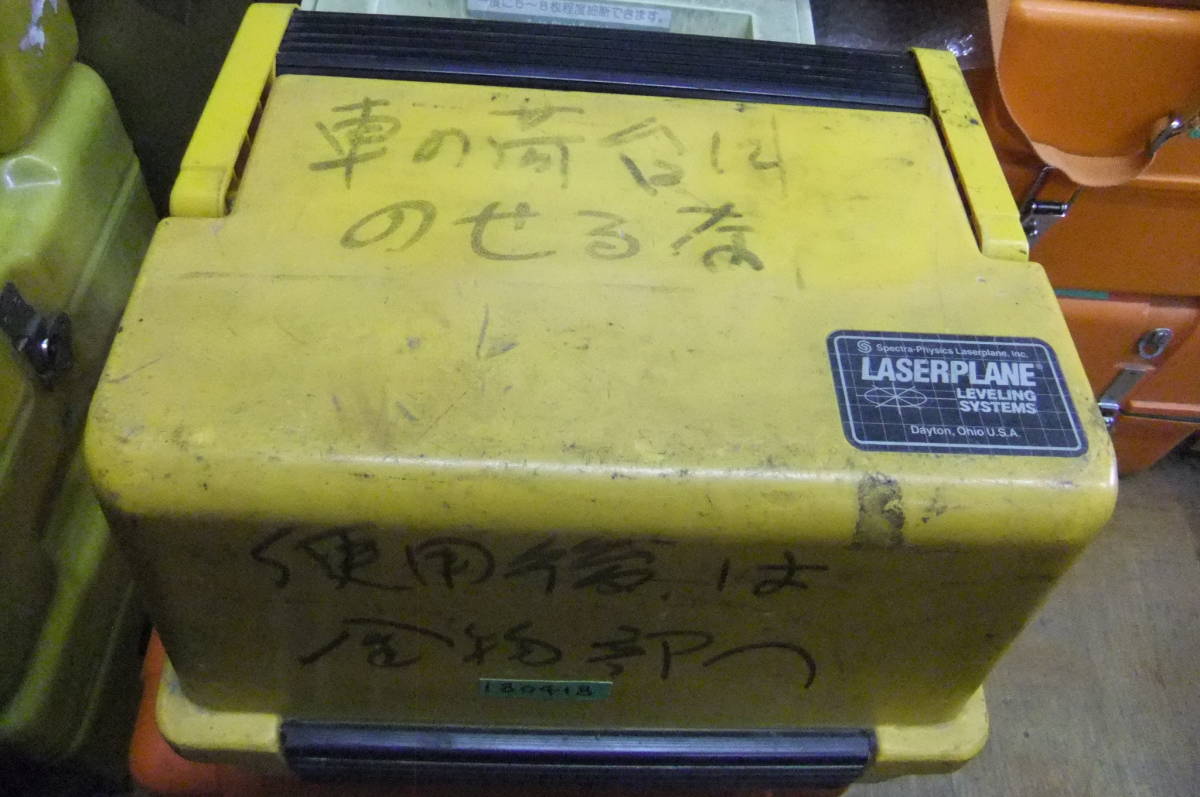 一度に6～8枚程度細断できます。
車の荷台に
のせるな
Spectra-Physics Laserplane, Inc.
LASERPLANE®
LEVELING
SYSTEMS
Dayton, Ohio U.S.A.
使用後は
金物部へ
180418